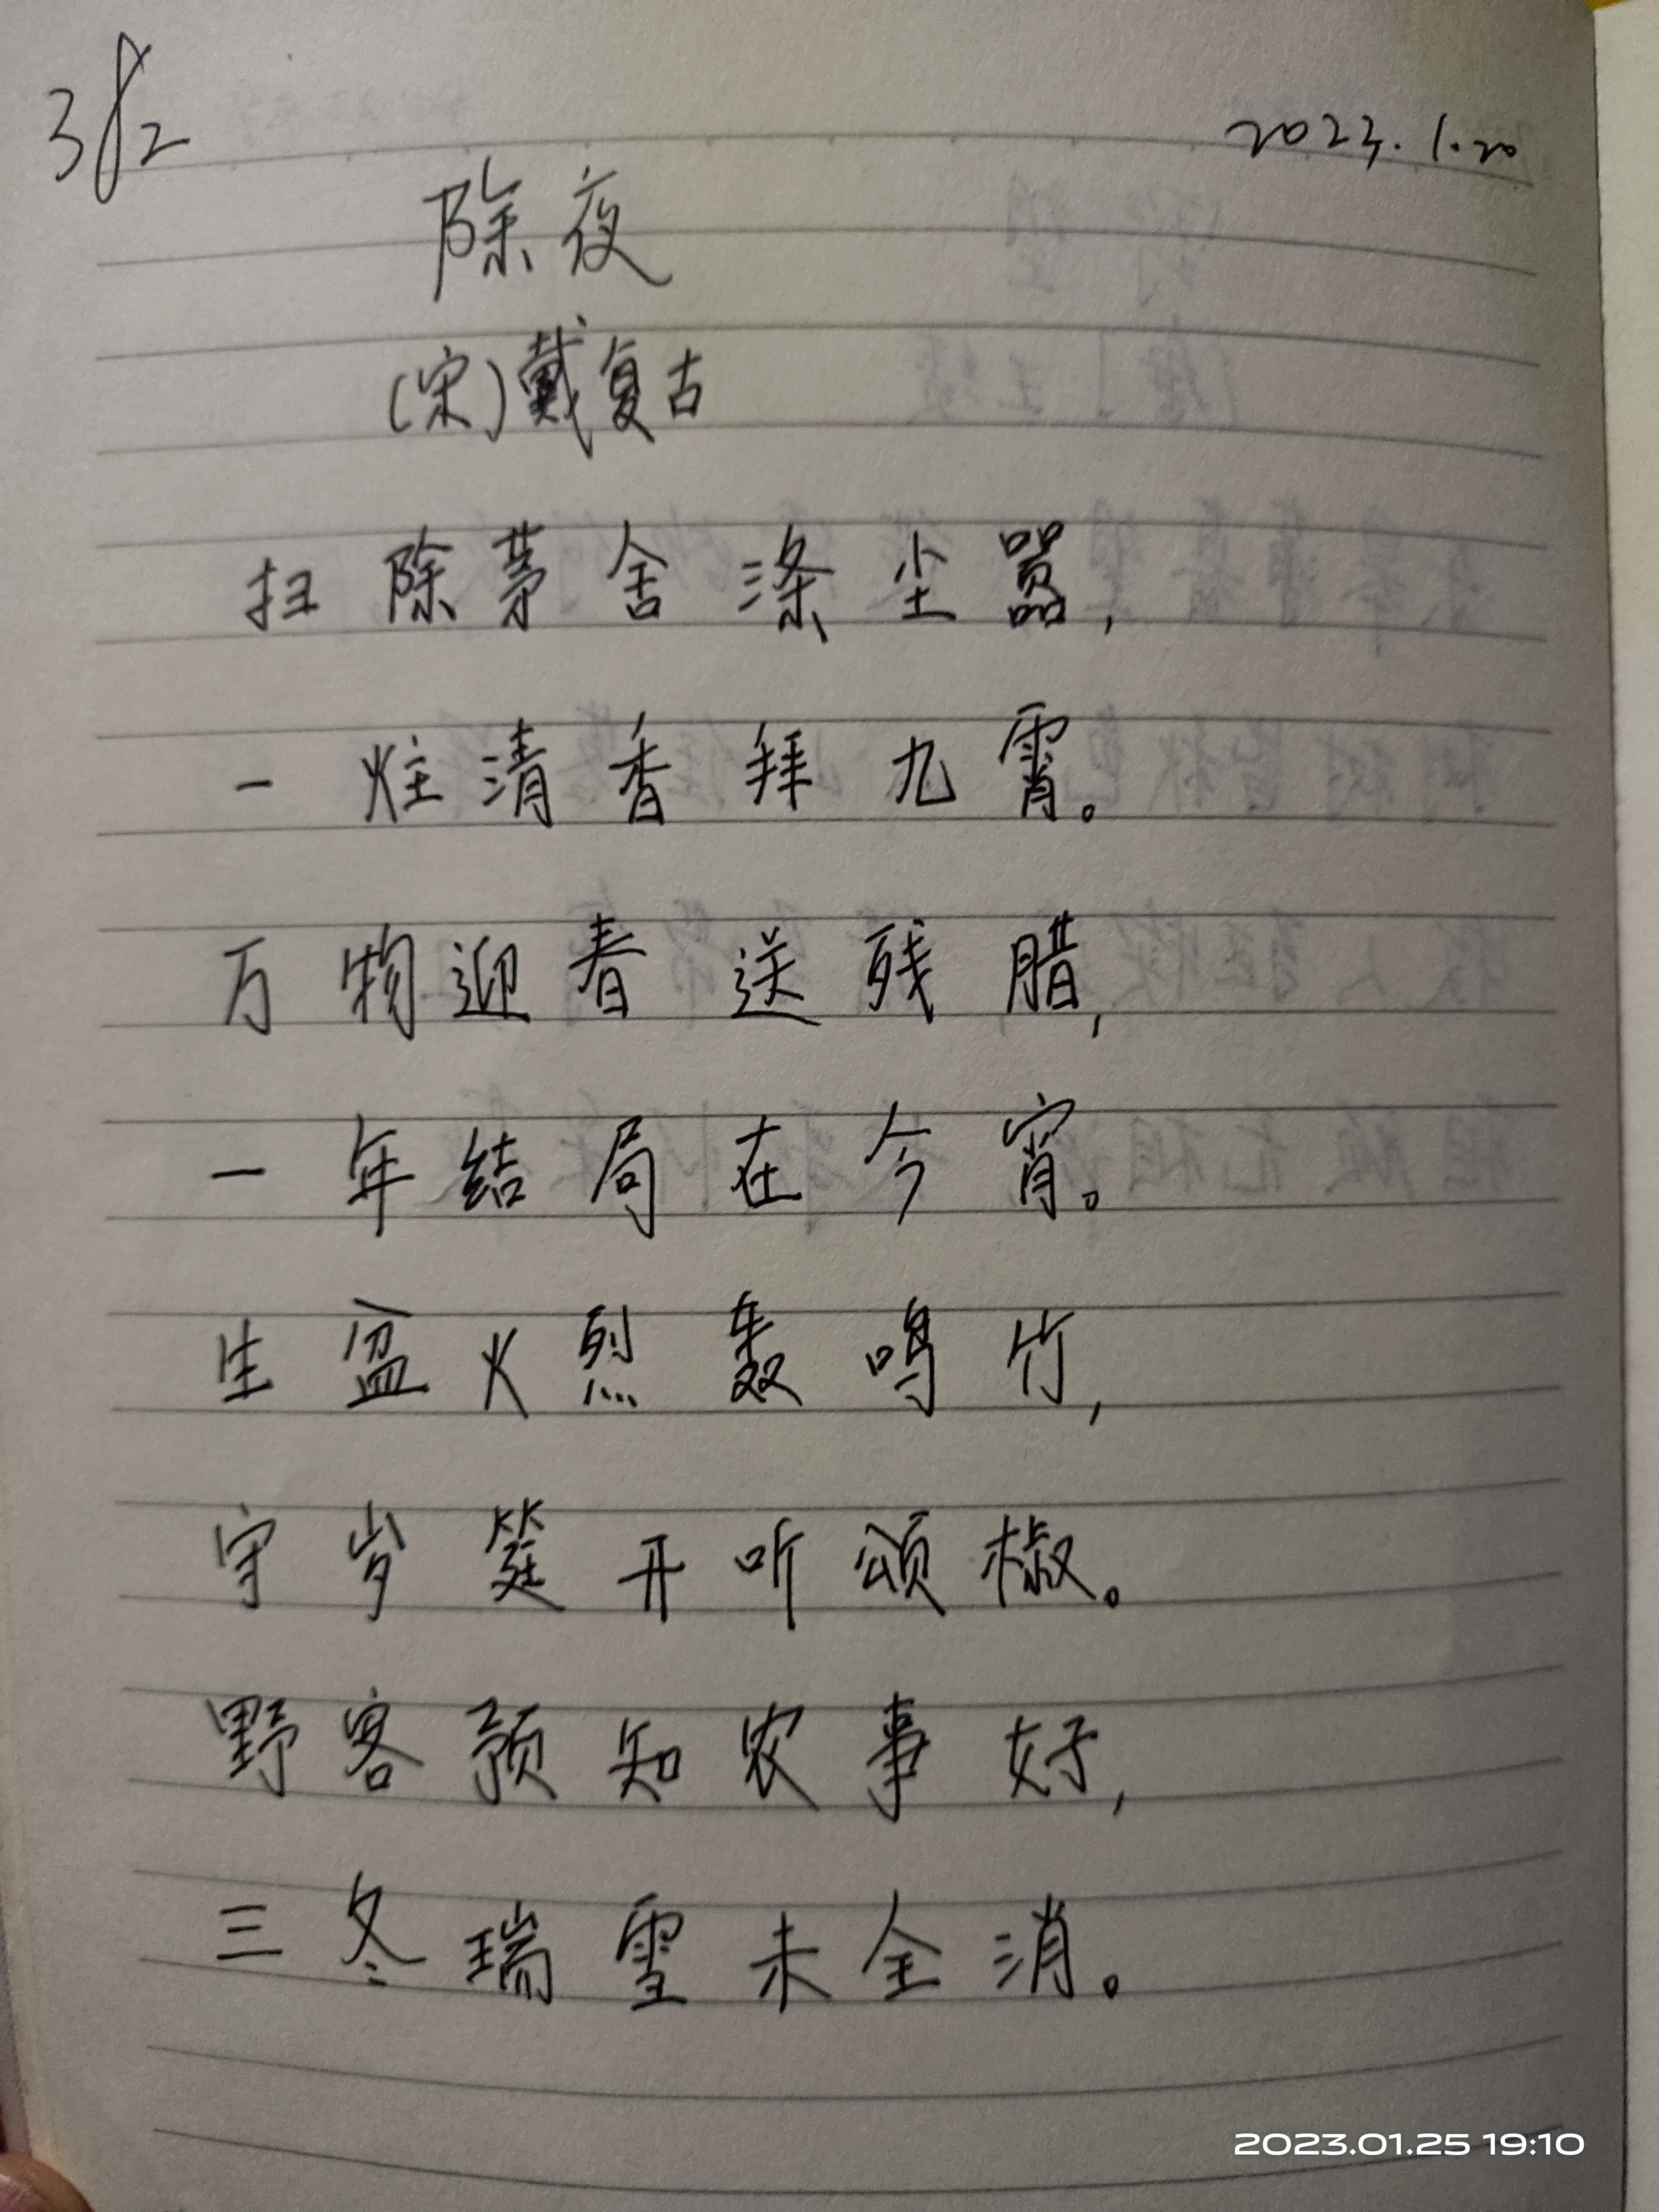 382
2023.1.20
除夜
(宋)戴复古
扫除茅舍涤尘嚣,
一炷清香拜九霄。
万物迎春送残腊,
一年结局在今宵。
生盆火烈轰鸣竹,
守岁筵开听颂椒。
野客预知农事好,
三冬瑞雪未全消。
2023.01.25 19:10